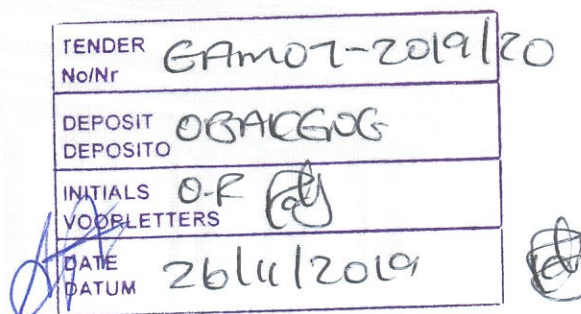 TENDER
No/Nr GAM07-2019/20
DEPOSIT
DEPOSITO
INITIALS O-F
VOORLETTERS
DATE
DATUM 26/11/2019